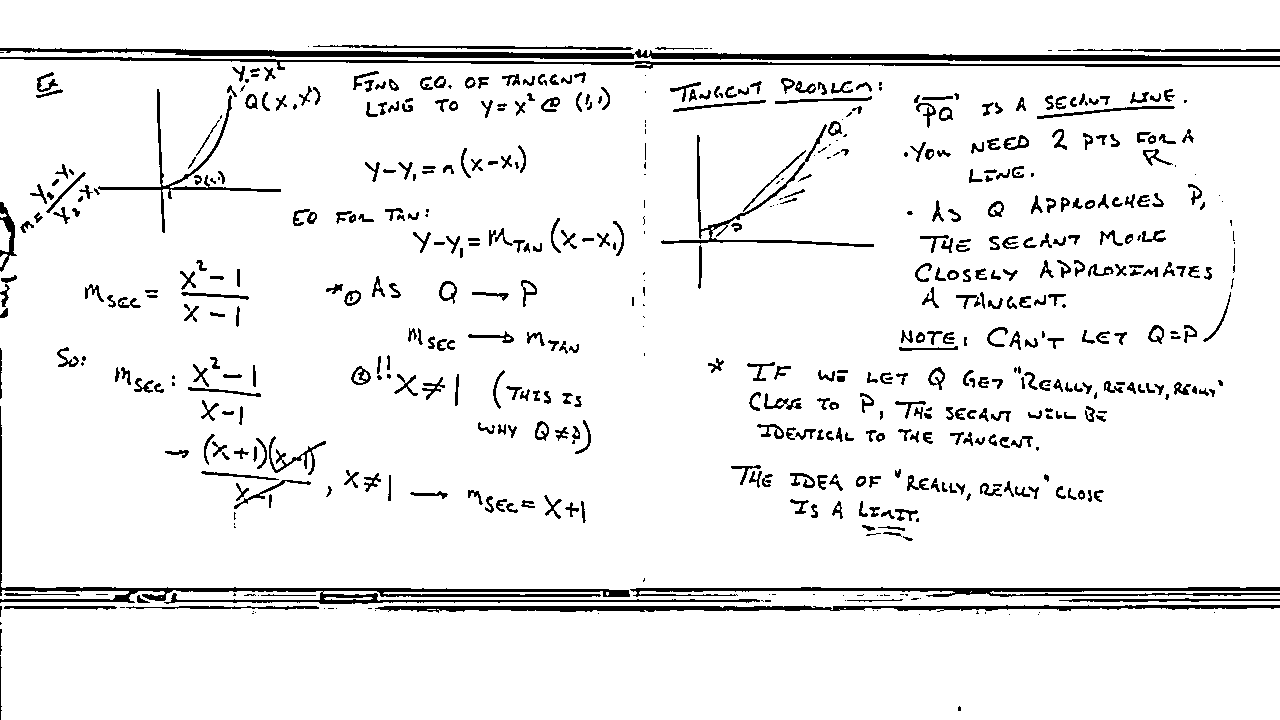 Ex
y=x²
Q(x,x²)
P(1,1)
1
m=y₂-y₁/x₂-x₁
FIND EQ. OF TANGENT
LINE TO y=x² @ (1,1)
y-y₁=m(x-x₁)
EQ FOR TAN:
y-y₁=m_TAN(x-x₁)
m_SEC = x²-1/x-1
*① AS Q → P
m_SEC → m_TAN
So:
m_SEC: x²-1/x-1
② !! x≠1 (THIS IS
WHY Q≠P)
→ (x+1)(x-1)/x-1, x≠1 → m_SEC = x+1
TANGENT PROBLEM:
Q
P
PQ IS A SECANT LINE.
•YOU NEED 2 PTS FOR A
LINE.
• AS Q APPROACHES P,
THE SECANT MORE
CLOSELY APPROXIMATES
A TANGENT.
NOTE: CAN'T LET Q=P
* IF WE LET Q GET "REALLY, REALLY, REALLY"
CLOSE TO P, THE SECANT WILL BE
IDENTICAL TO THE TANGENT.
THE IDEA OF "REALLY, REALLY" CLOSE
IS A LIMIT.